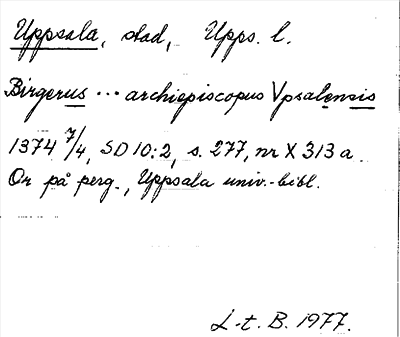 Uppsala, stad, Upps. l.
Birgerus ... archiepiscopus Vpsalensis
1374 7/4, SD 10:2, s. 277, nr X 313 a.
Or på perg., Uppsala univ.-bibl.
L-t. B. 1977.